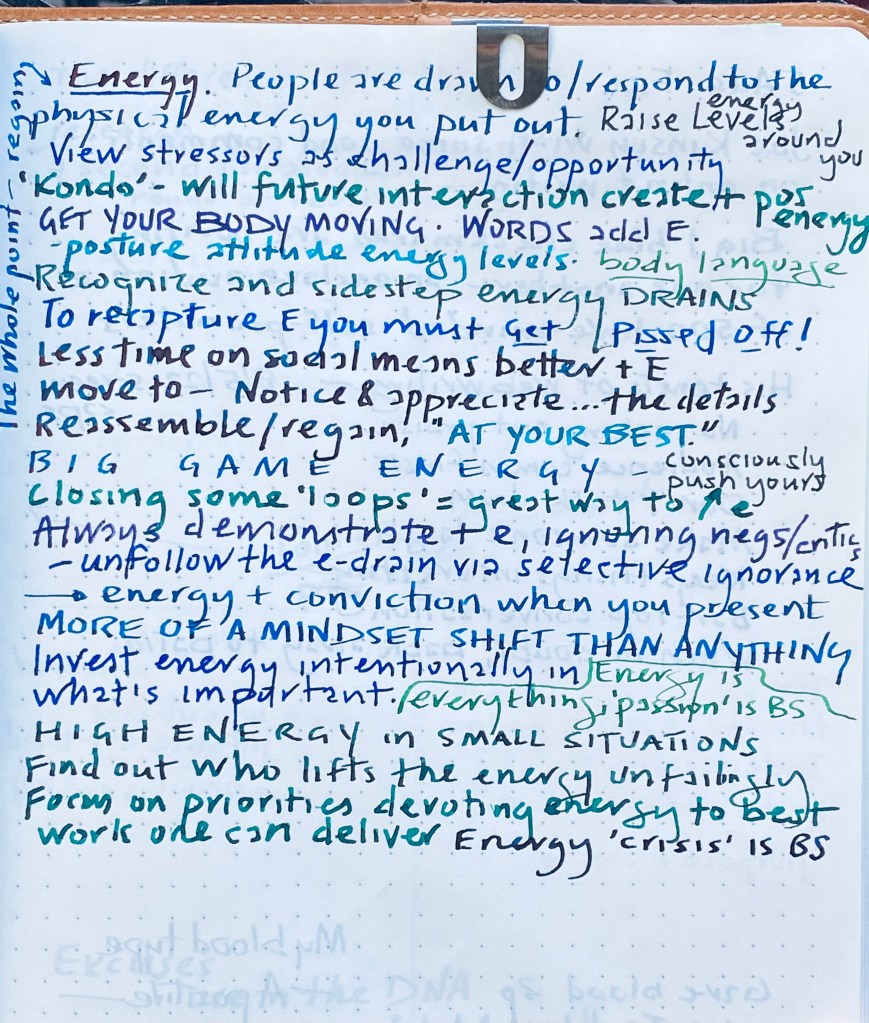 The whole point — regain
Energy. People are drawn to/respond to the
physical energy you put out. Raise energy Levels
around you
View stressors as challenge/opportunity
'Kondo' - will future interaction create + pos
energy
GET YOUR BODY MOVING. WORDS add E.
-posture attitude energy levels. body language
Recognize and sidestep energy DRAINS
To recapture E you must Get Pissed Off!
Less time on social means better + E
move to — Notice & appreciate...the details
Reassemble/regain, "AT YOUR BEST."
BIG GAME ENERGY - consciously
push yours
Closing some 'loops' = great way to ↑ e
Always demonstrate + e, ignoring negs/critics
- unfollow the e-drain via selective ignorance
→ energy + conviction when you present
MORE OF A MINDSET SHIFT THAN ANYTHING
Invest energy intentionally in Energy is
what's important. /everything; 'passion' is BS
HIGH ENERGY in SMALL SITUATIONS
Find out who lifts the energy unfailingly
Focus on priorities devoting energy to best
work one can deliver Energy 'crisis' is BS
My blood type
Excuses